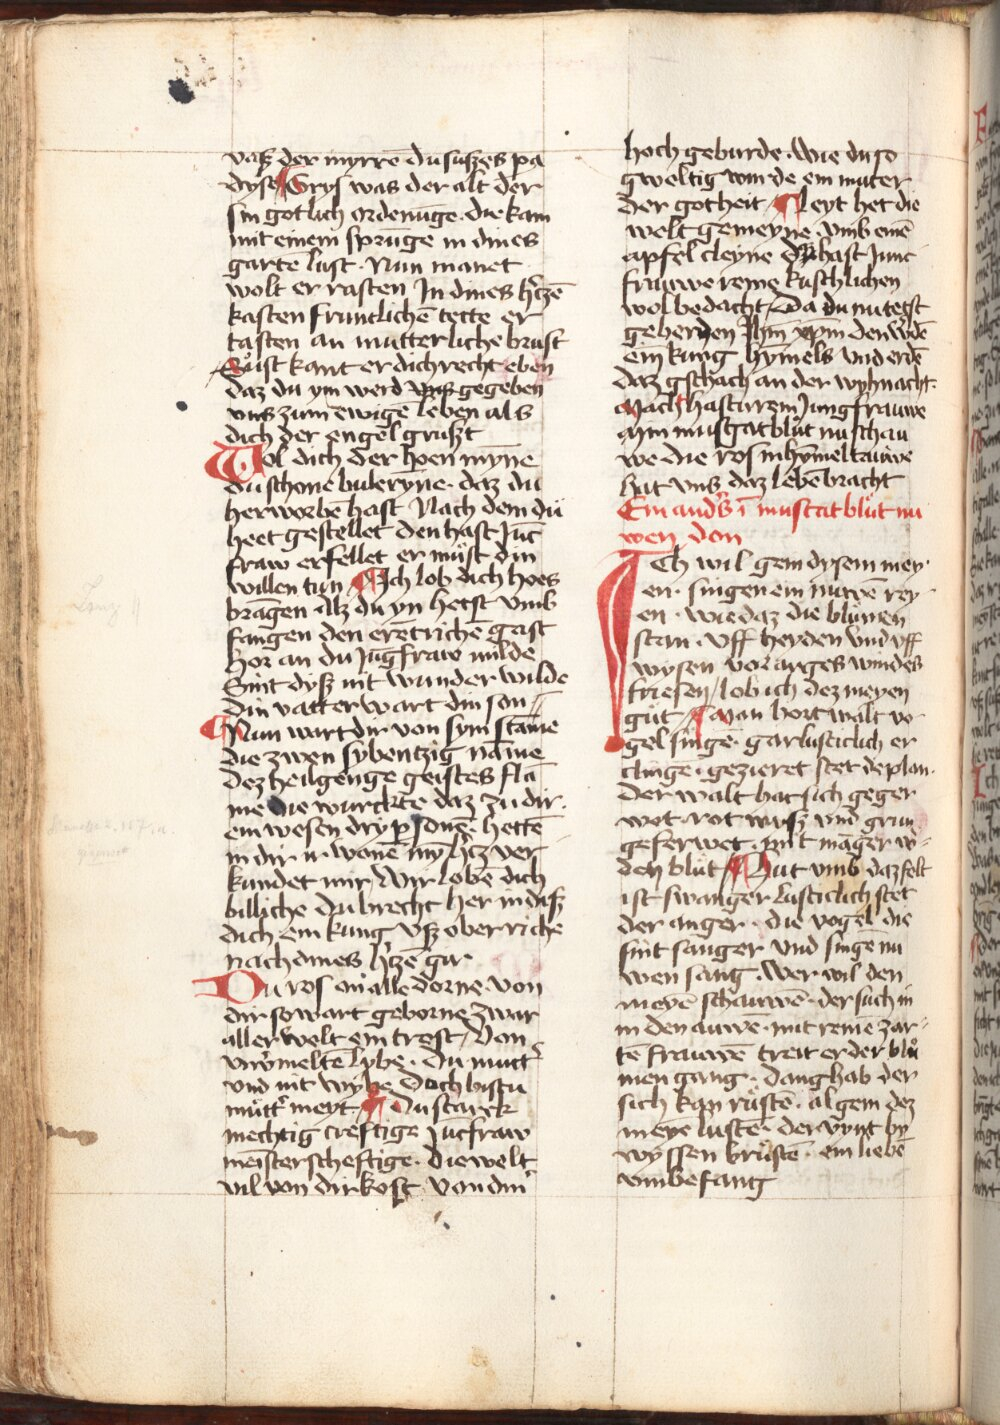 vasz der myrre du suszes pa
dyse Grys was der alt der
sin gotlich ordenūge. die kam
mit einem sprunge in dines
garte lust. Nun manet
wolt er rasten In dines h'tzē
kasten fruntlichē tette er
tasten an mutterliche brust
Sust kant er dich recht eben
daz du ym werd vns gegeben
vns zum ewigē leben als
dich der engel gruszt
Wol dich der hoen myne
du schone buleryne. daz du
herworbē hast Nach dem du
heet gestellet den hast Juc
fraw erfellet er müst din
willen tun Ich lob dich hoes
bragen Alz du yn hetst vmb
fangen den erētrichē gast
hor an du Jūgfraw milde
Sint dysz nit wunder wilde
din vatter wart din son
Nun wart dir von sym stame
die zwen sybentzig name
dez heilgenge geistes fla
me die wurckte daz zu dir.
ein wesen dry p'sonē. hettē
in dir ir wonē myn h'tz ver
kundet mir Wir lobē dich
billiche du brecht her in disz
dich ein kung vsz oberriche
nach dines h'tzē gir
Du ros on alle dorne von
dir so wart geborne zwar
aller welt ein trost Von
vnv'meltē lybe. du mutt'
vnd nit wybe Doch bistu
mütt' meyt Du starck
mechtig creftige Jucfraw
meisterscheftige. die welt
vil von dir kosz. von din'
hoch geburde. Wie du so
gweltig wurde ein muter
der gotheit Leyt het die
welt gemeyne. vmb einē
apfel cleyne du hast Junc
frauwe reine kuschlichen
wol bedacht Da du mutest
geberden Jhm den w'dē
ein kung hymels vnd erdē
daz gschach an der wyhnacht.
Nach hast irrem Jungfrauwe
ayn musgatblüt nu schau
we die ros in hymel tauwe
hat vns daz lebē bracht
Ein and's ī muscatblüt nu
wen don
ICh wil gein dysem mey
en. singen ein nuwē rey
en. wie daz die blümen
stan. vff heyden vnd vff
wysen vor arges windes
friesen lob ich dez meyen
güt Man hort walt vo
gel singē. gar lusticlich er
clinge. gezieret stet de plan.
Der walt hat sich geger
wet. rot wysz vnd grun
geferwet. mit māger w'
den blüt Hut vmb daz felt
ist swanger lusticlich stet
der anger. die vogel die
sint sanger vnd singē nu
wen sang. Wer wil den
meyē schauwē. der such in
in den auwē. mit reinē zar
tē frauwē treit er der blü
men gang. Danghab der
sich kan rüstē. al gein dez
meye lustē. der vynt by
wyssen brüstē. ein liebē
vmbefang